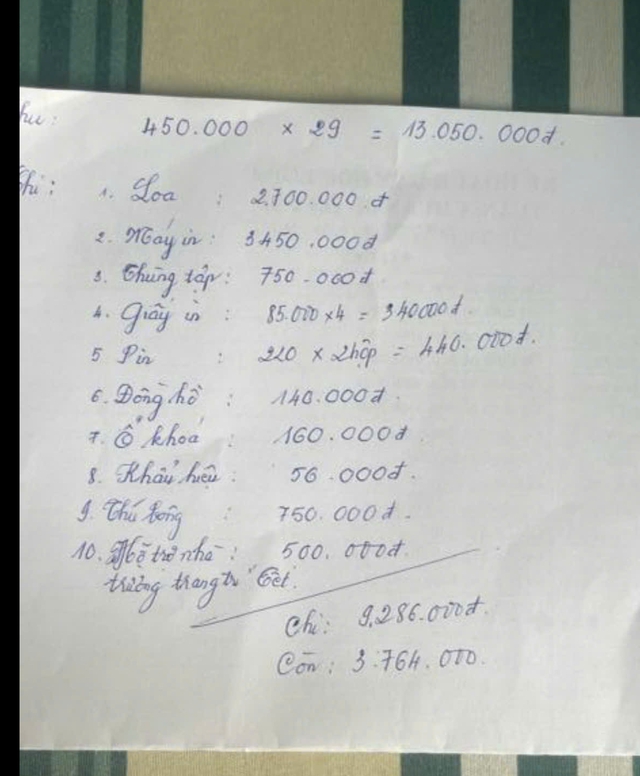 hu: 450.000 × 29 = 13.050.000đ.
Chi: 1. Loa : 2.700.000.đ
2. Máy in: 3450.000đ
3. Thùng tập: 750.000đ.
4. Giấy in : 85.000×4 = 340000đ.
5 Pin : 220 × 2hộp = 440.000đ.
6. Đồng hồ : 140.000đ.
7. Ổ khoá : 160.000đ.
8. Khẩu hiệu: 56.000đ.
9. Thú bông : 750.000đ.
10. Hỗ trợ nhà: 500.000đ.
trường trang trí Tết.
Chi: 9.286.000đ.
Còn: 3.764.000.